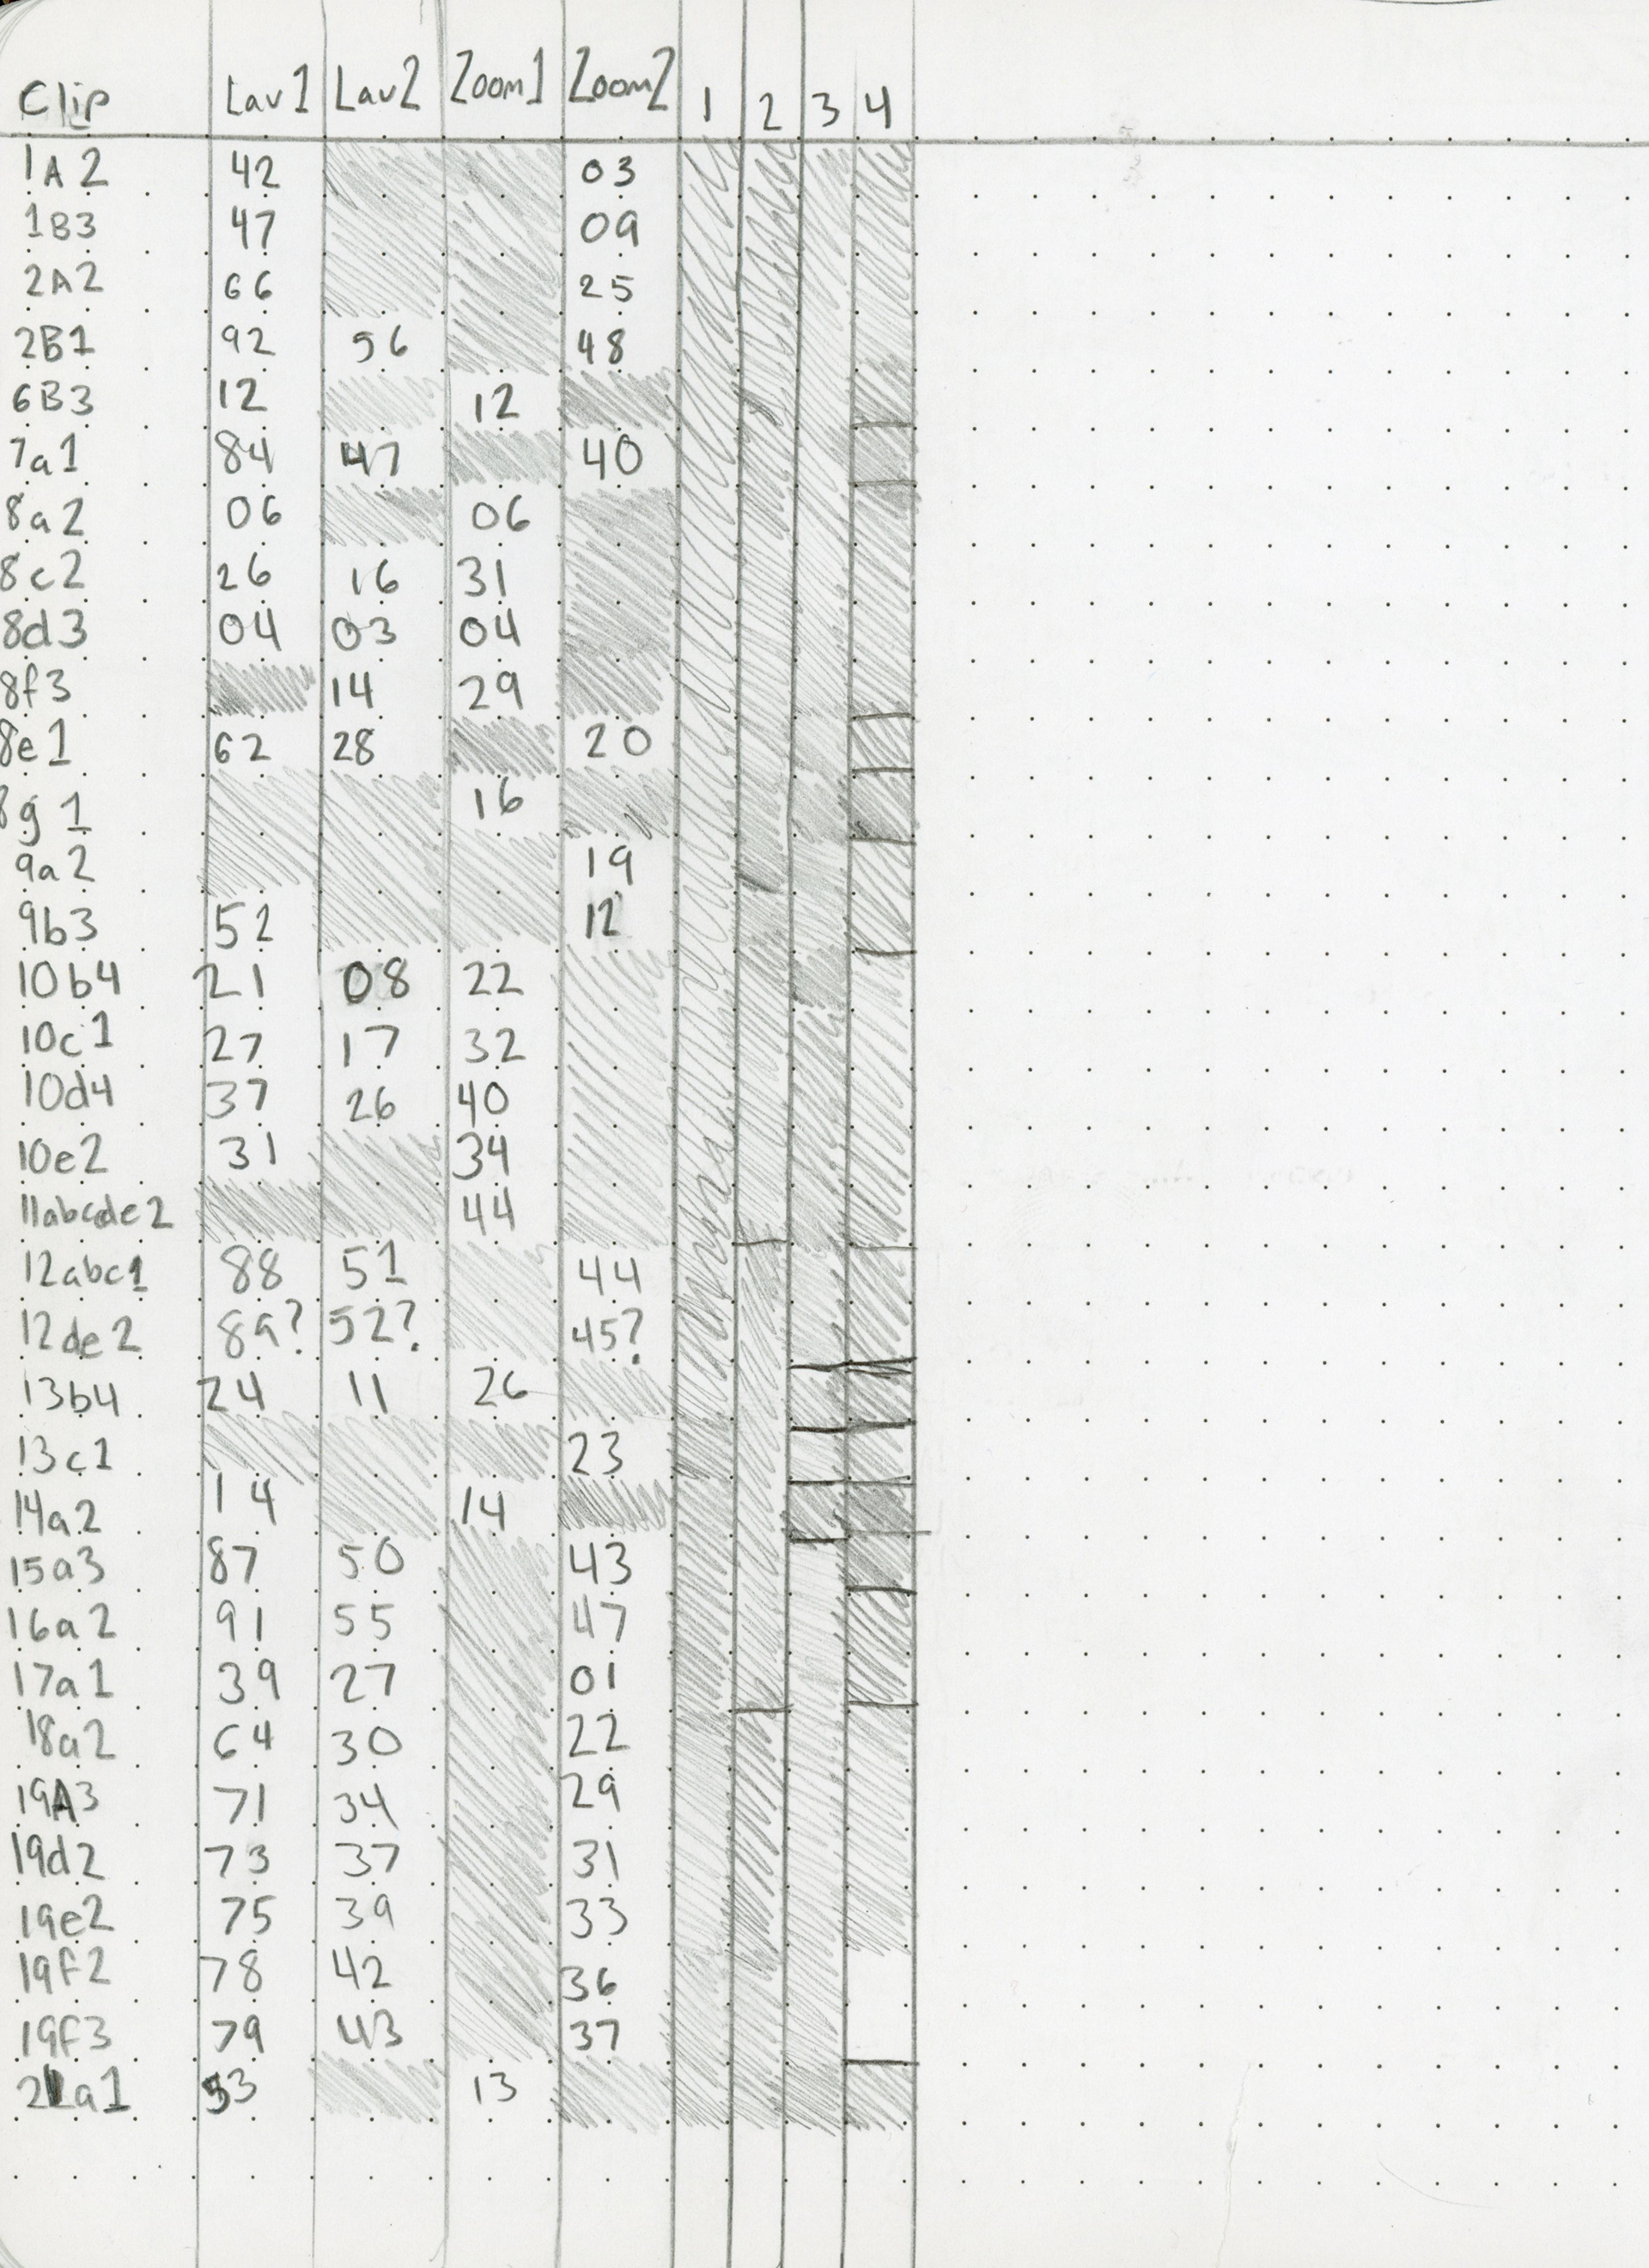 Clip Lav1 Lav2 Zoom1 Zoom2 1 2 3 4
1A2 42 03
1B3 47 09
2A2 66 25
2B1 92 56 48
6B3 12 12
7a1 84 47 40
8a2 06 06
8c2 26 16 31
8d3 04 03 04
8f3 14 29
8e1 62 28 20
8g1 16
9a2 19
9b3 52 12
10b4 21 08 22
10c1 27 17 32
10d4 37 26 40
10e2 31 34
11abcde2 44
12abc1 88 51 44
12de2 89? 52? 45?
13b4 24 11 26
13c1 23
14a2 14 14
15a3 87 50 43
16a2 91 55 47
17a1 39 27 01
18a2 64 30 22
19A3 71 34 29
19d2 73 37 31
19e2 75 39 33
19f2 78 42 36
19f3 79 43 37
53 13